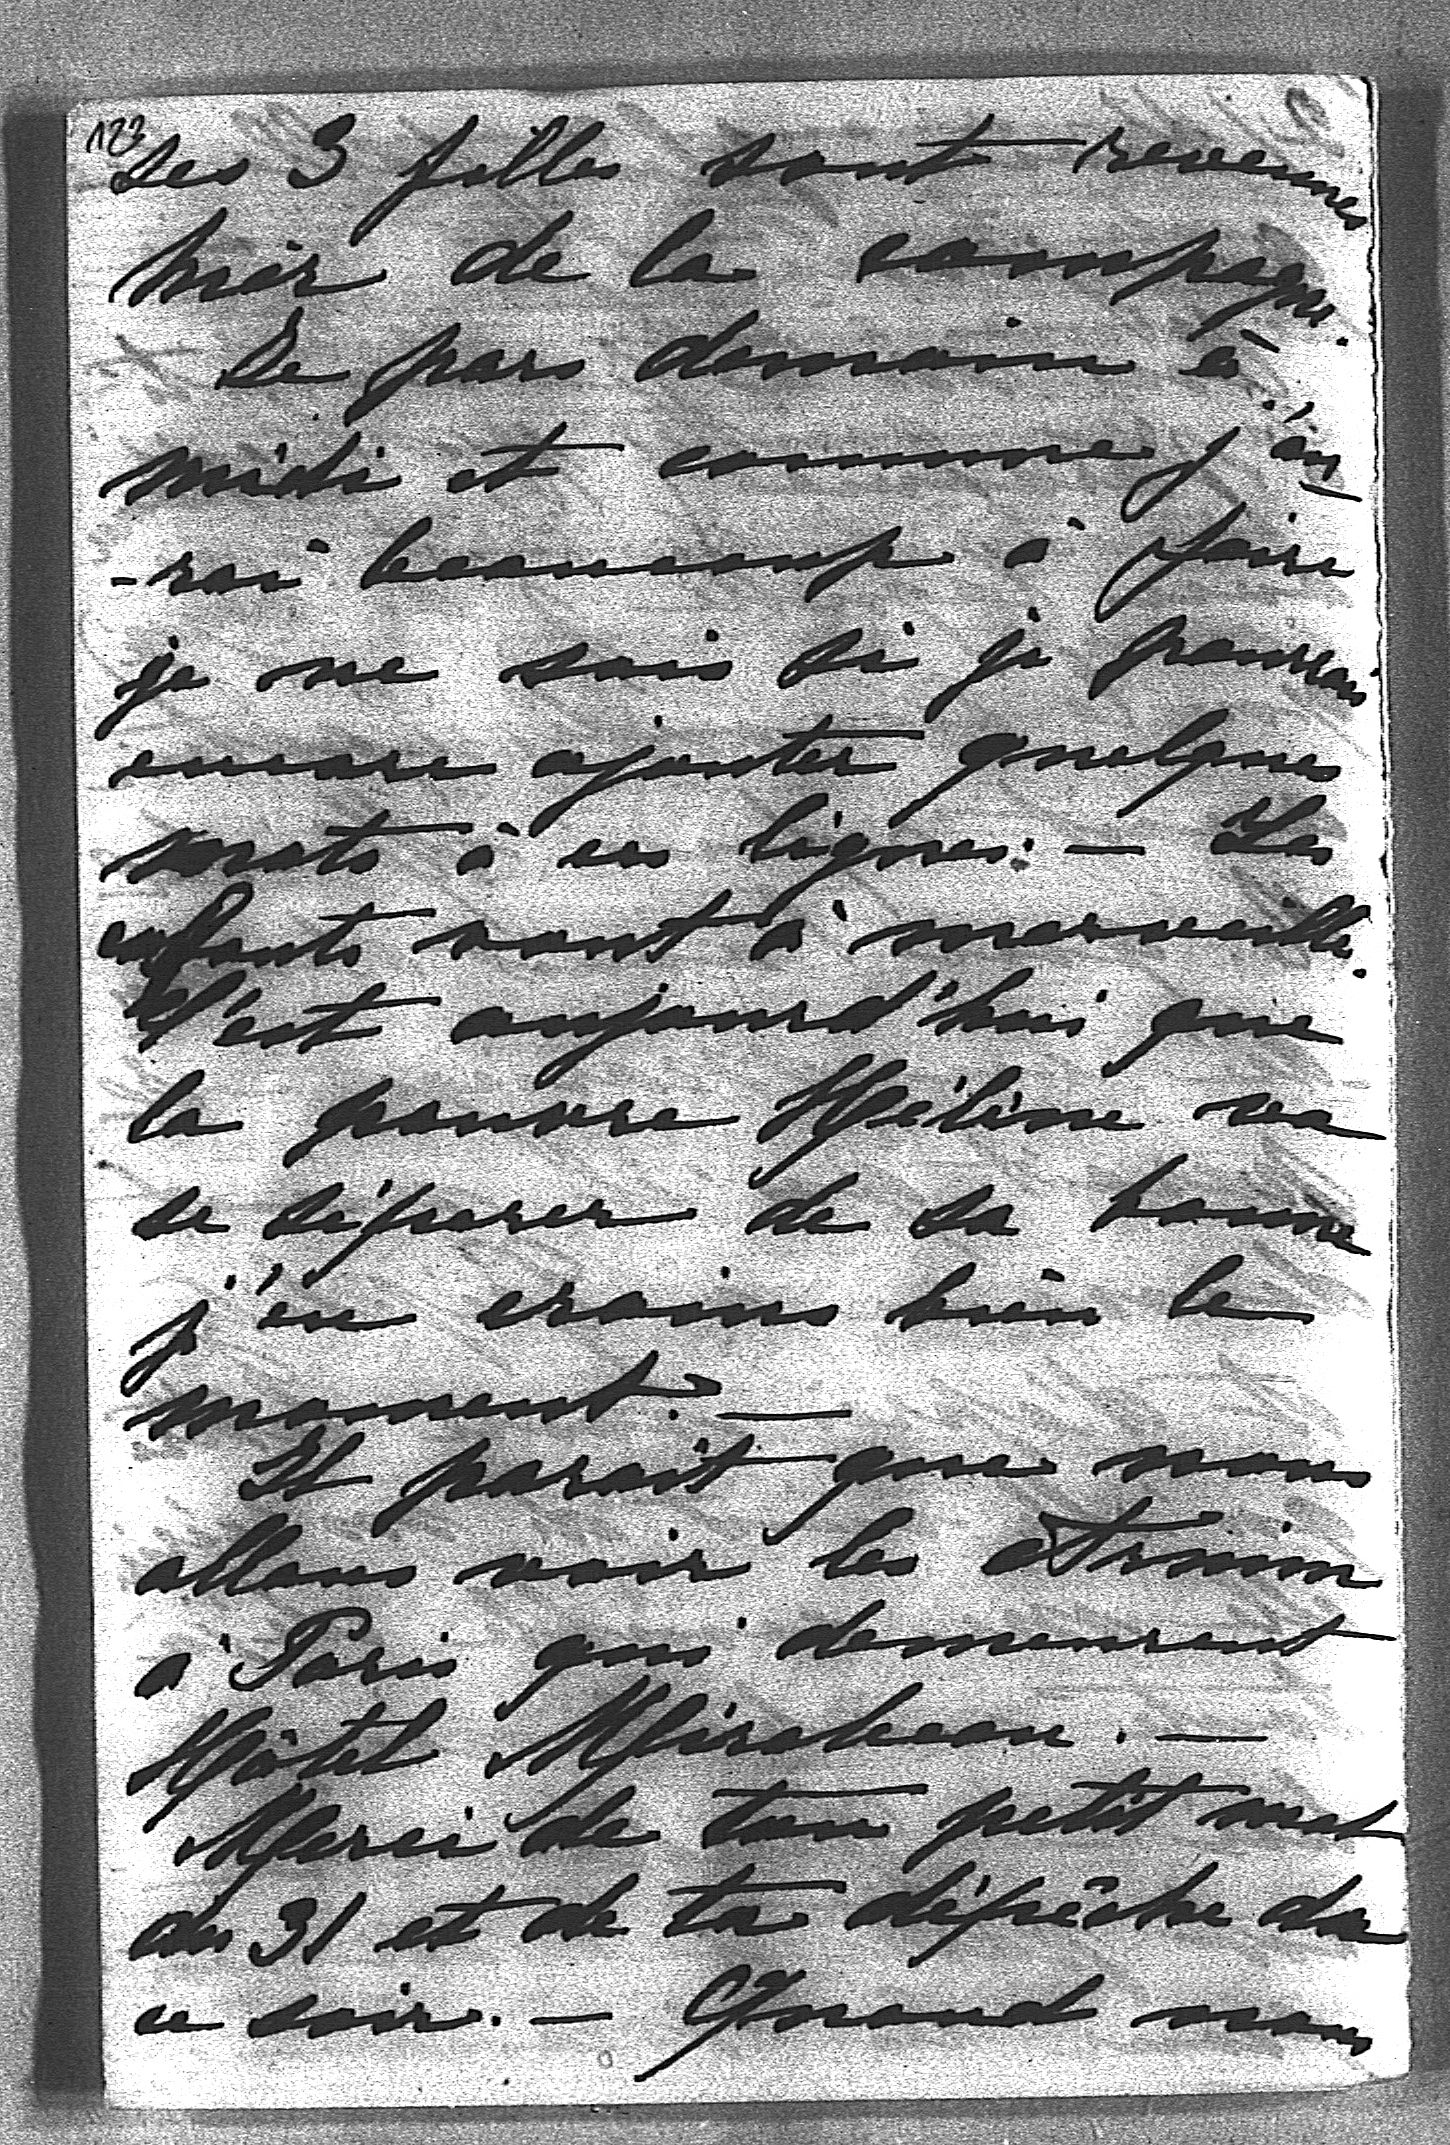 123
Les 3 filles sont revenues
hier de la campagne.
Je pars demain à
midi et comme j'au-
-rai beaucoup à faire
je ne sais si je pourrai
encore ajouter quelques
mots à ces lignes. — Les
enfants vont à merveille.
C'est aujourd'hui que
la pauvre Hélène va
se séparer de sa bonne
j'en crains bien le
moment. —
Il parait que nous
allons voir les Arnim
à Paris qui demeurent
Hôtel Mirabeau. —
Merci de ton petit mot
du 31 et de ta dépêche de
ce soir. — Quand nous